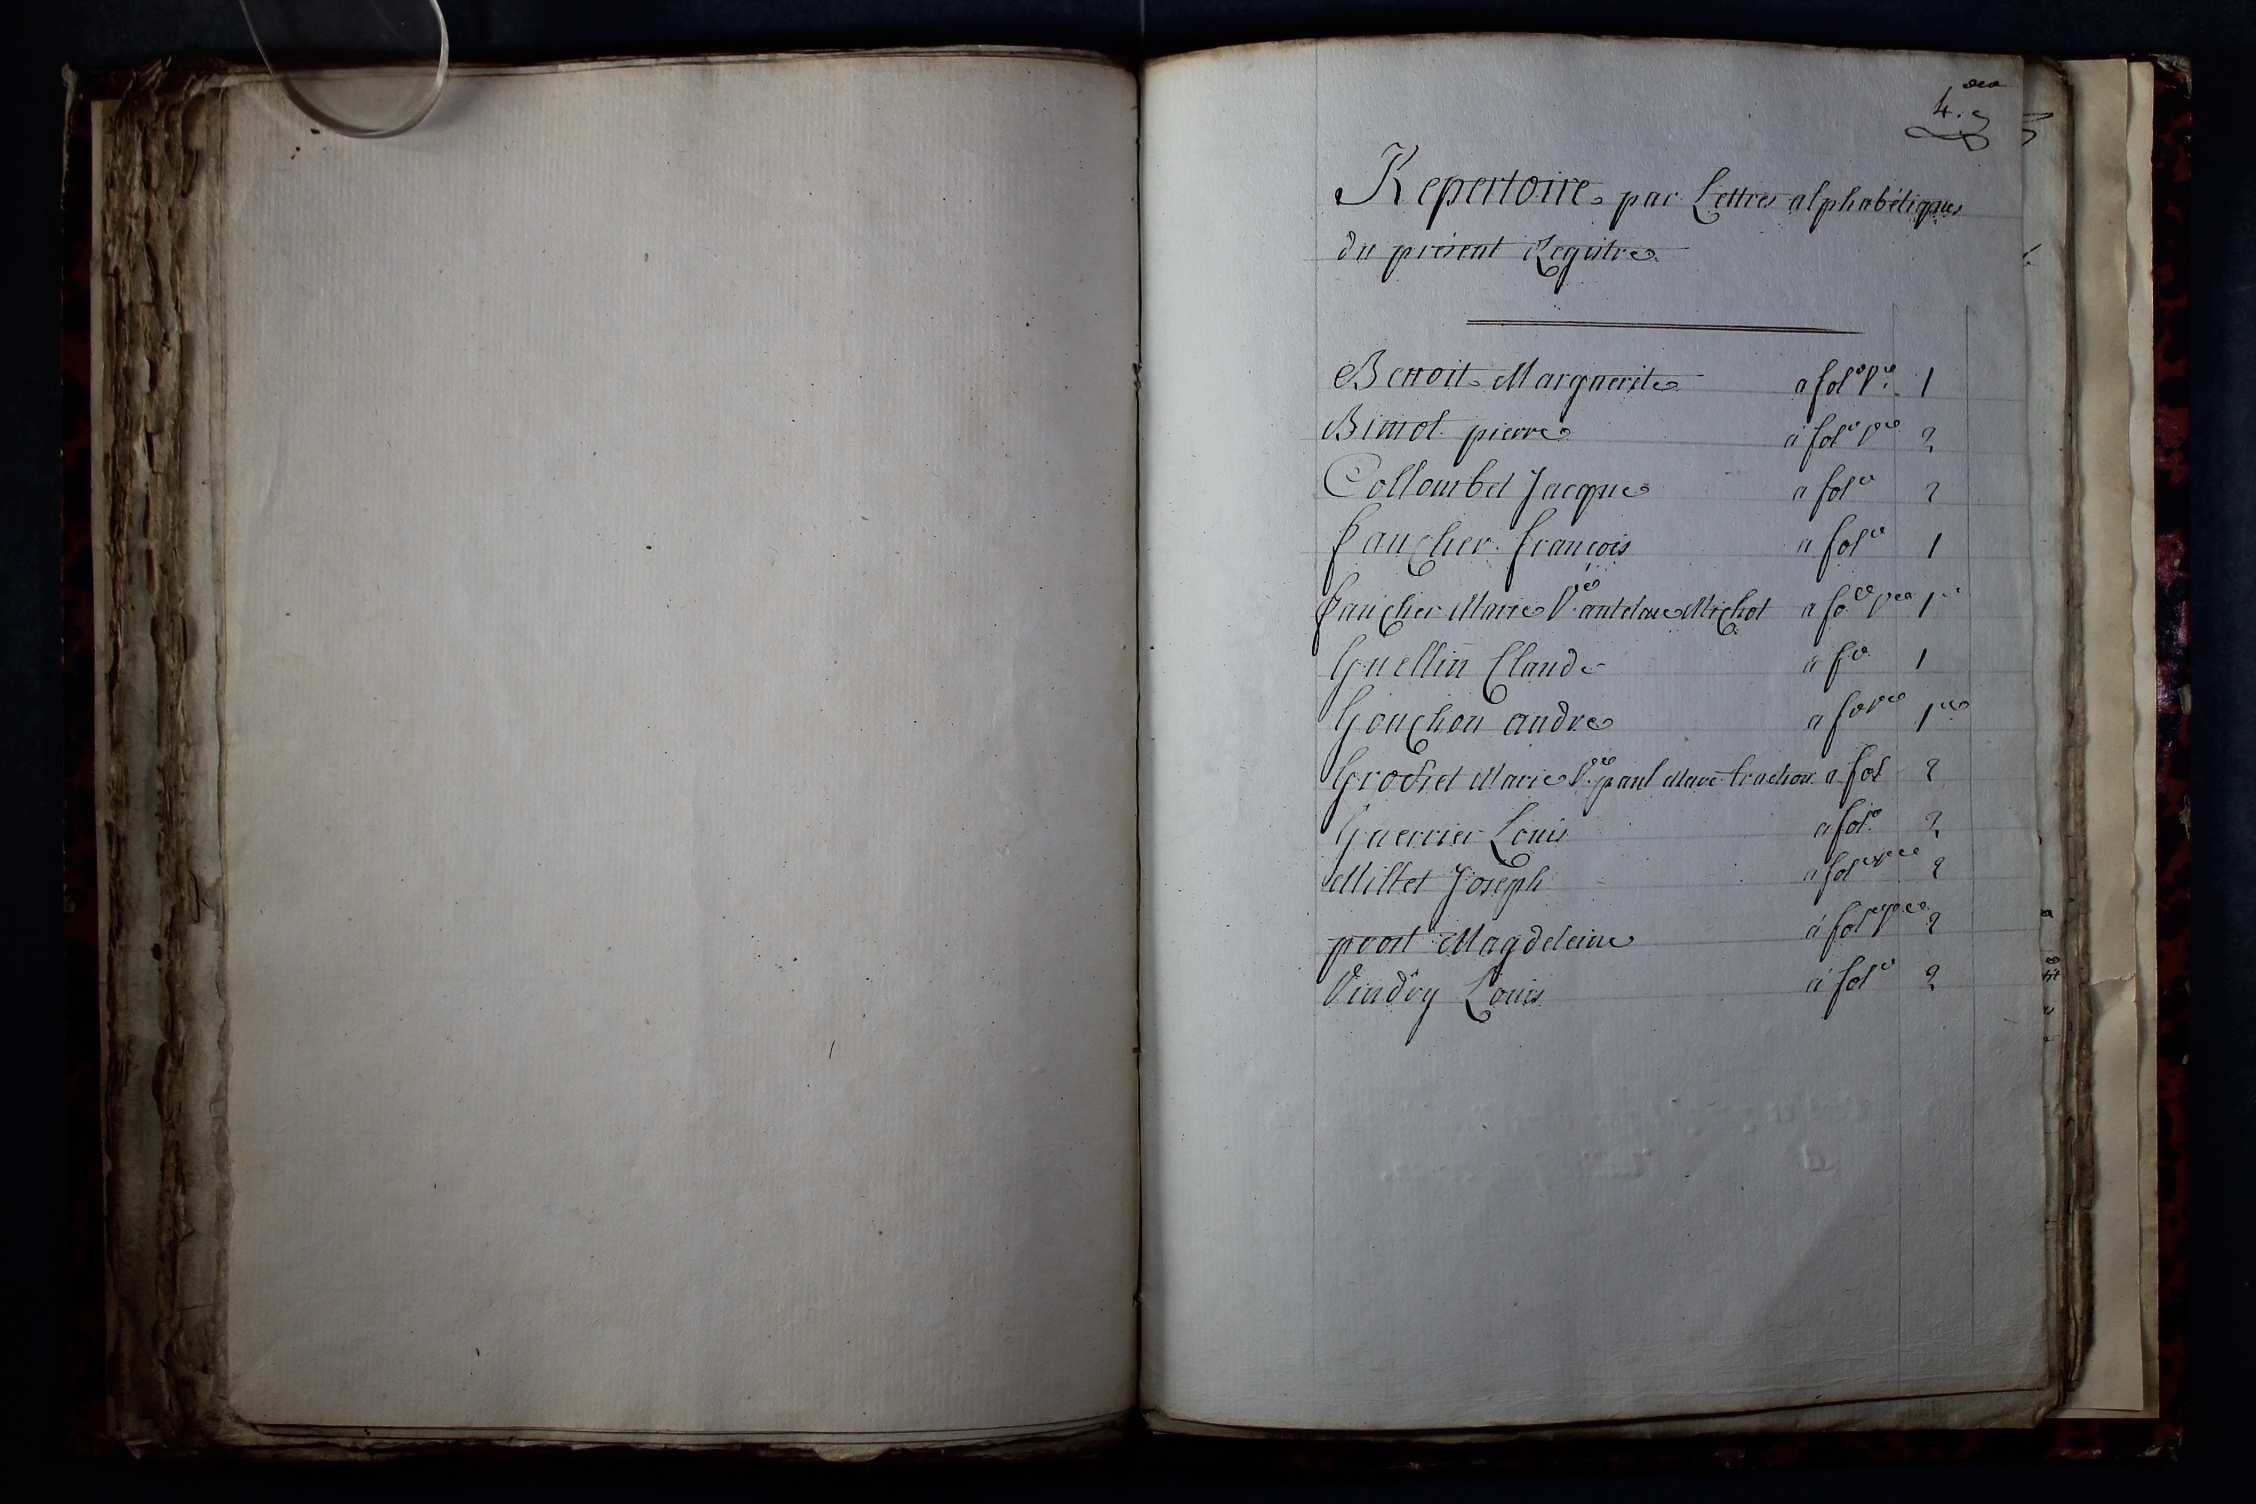 4.
Repertoire par Lettres alphabétiques
du présent Registre.
Benoit Marguerite a fol.o v.o 1
Bimot pierre a fol.o v.o 2
Collombet Jacque a fol.o 2
faucher françois a fol.o 1
faucher Marie V.e antelme Michot a fo v.o 1
Guellin Claude a f.o 1
Gouchon andre a fo v.o 1
Marie V.e paul a fol 2
Guerrier Louis a fol.o 2
Millet Joseph a fol.o v.o 2
prost Magdeleine a fol.o v.o 2
Vindry Louis a fol.o 2